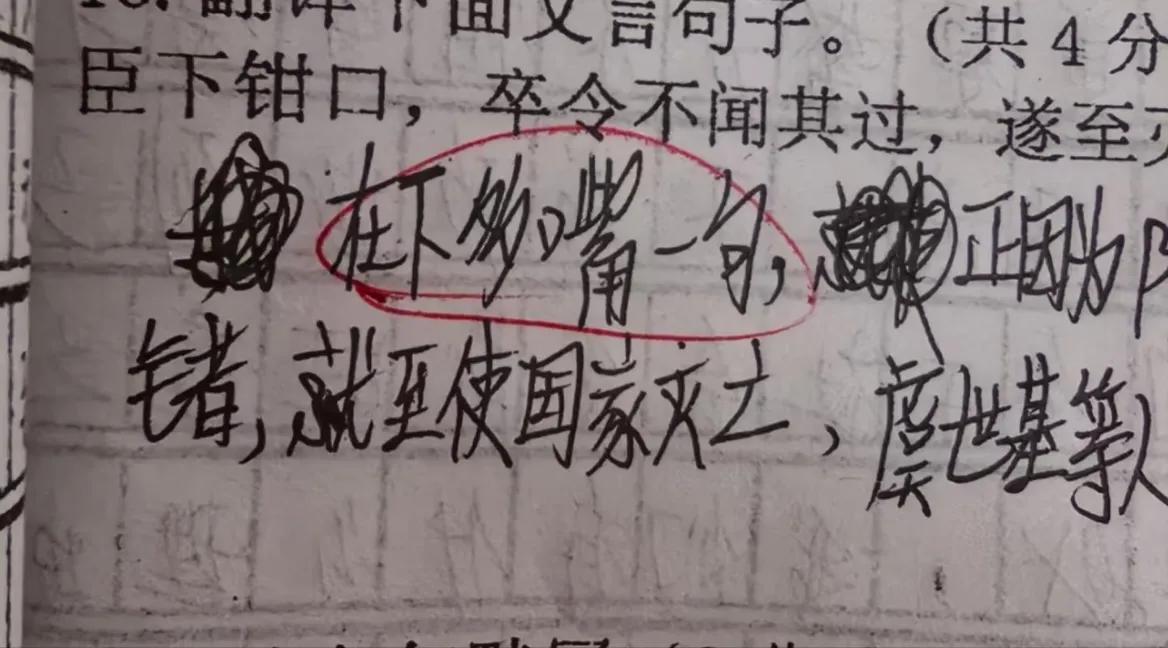 翻译下面文言句子。（共4分
臣下钳口，卒令不闻其过，遂至灭
在下多嘴一句，正因为
错者，就至使国家灭亡，虞世基等人